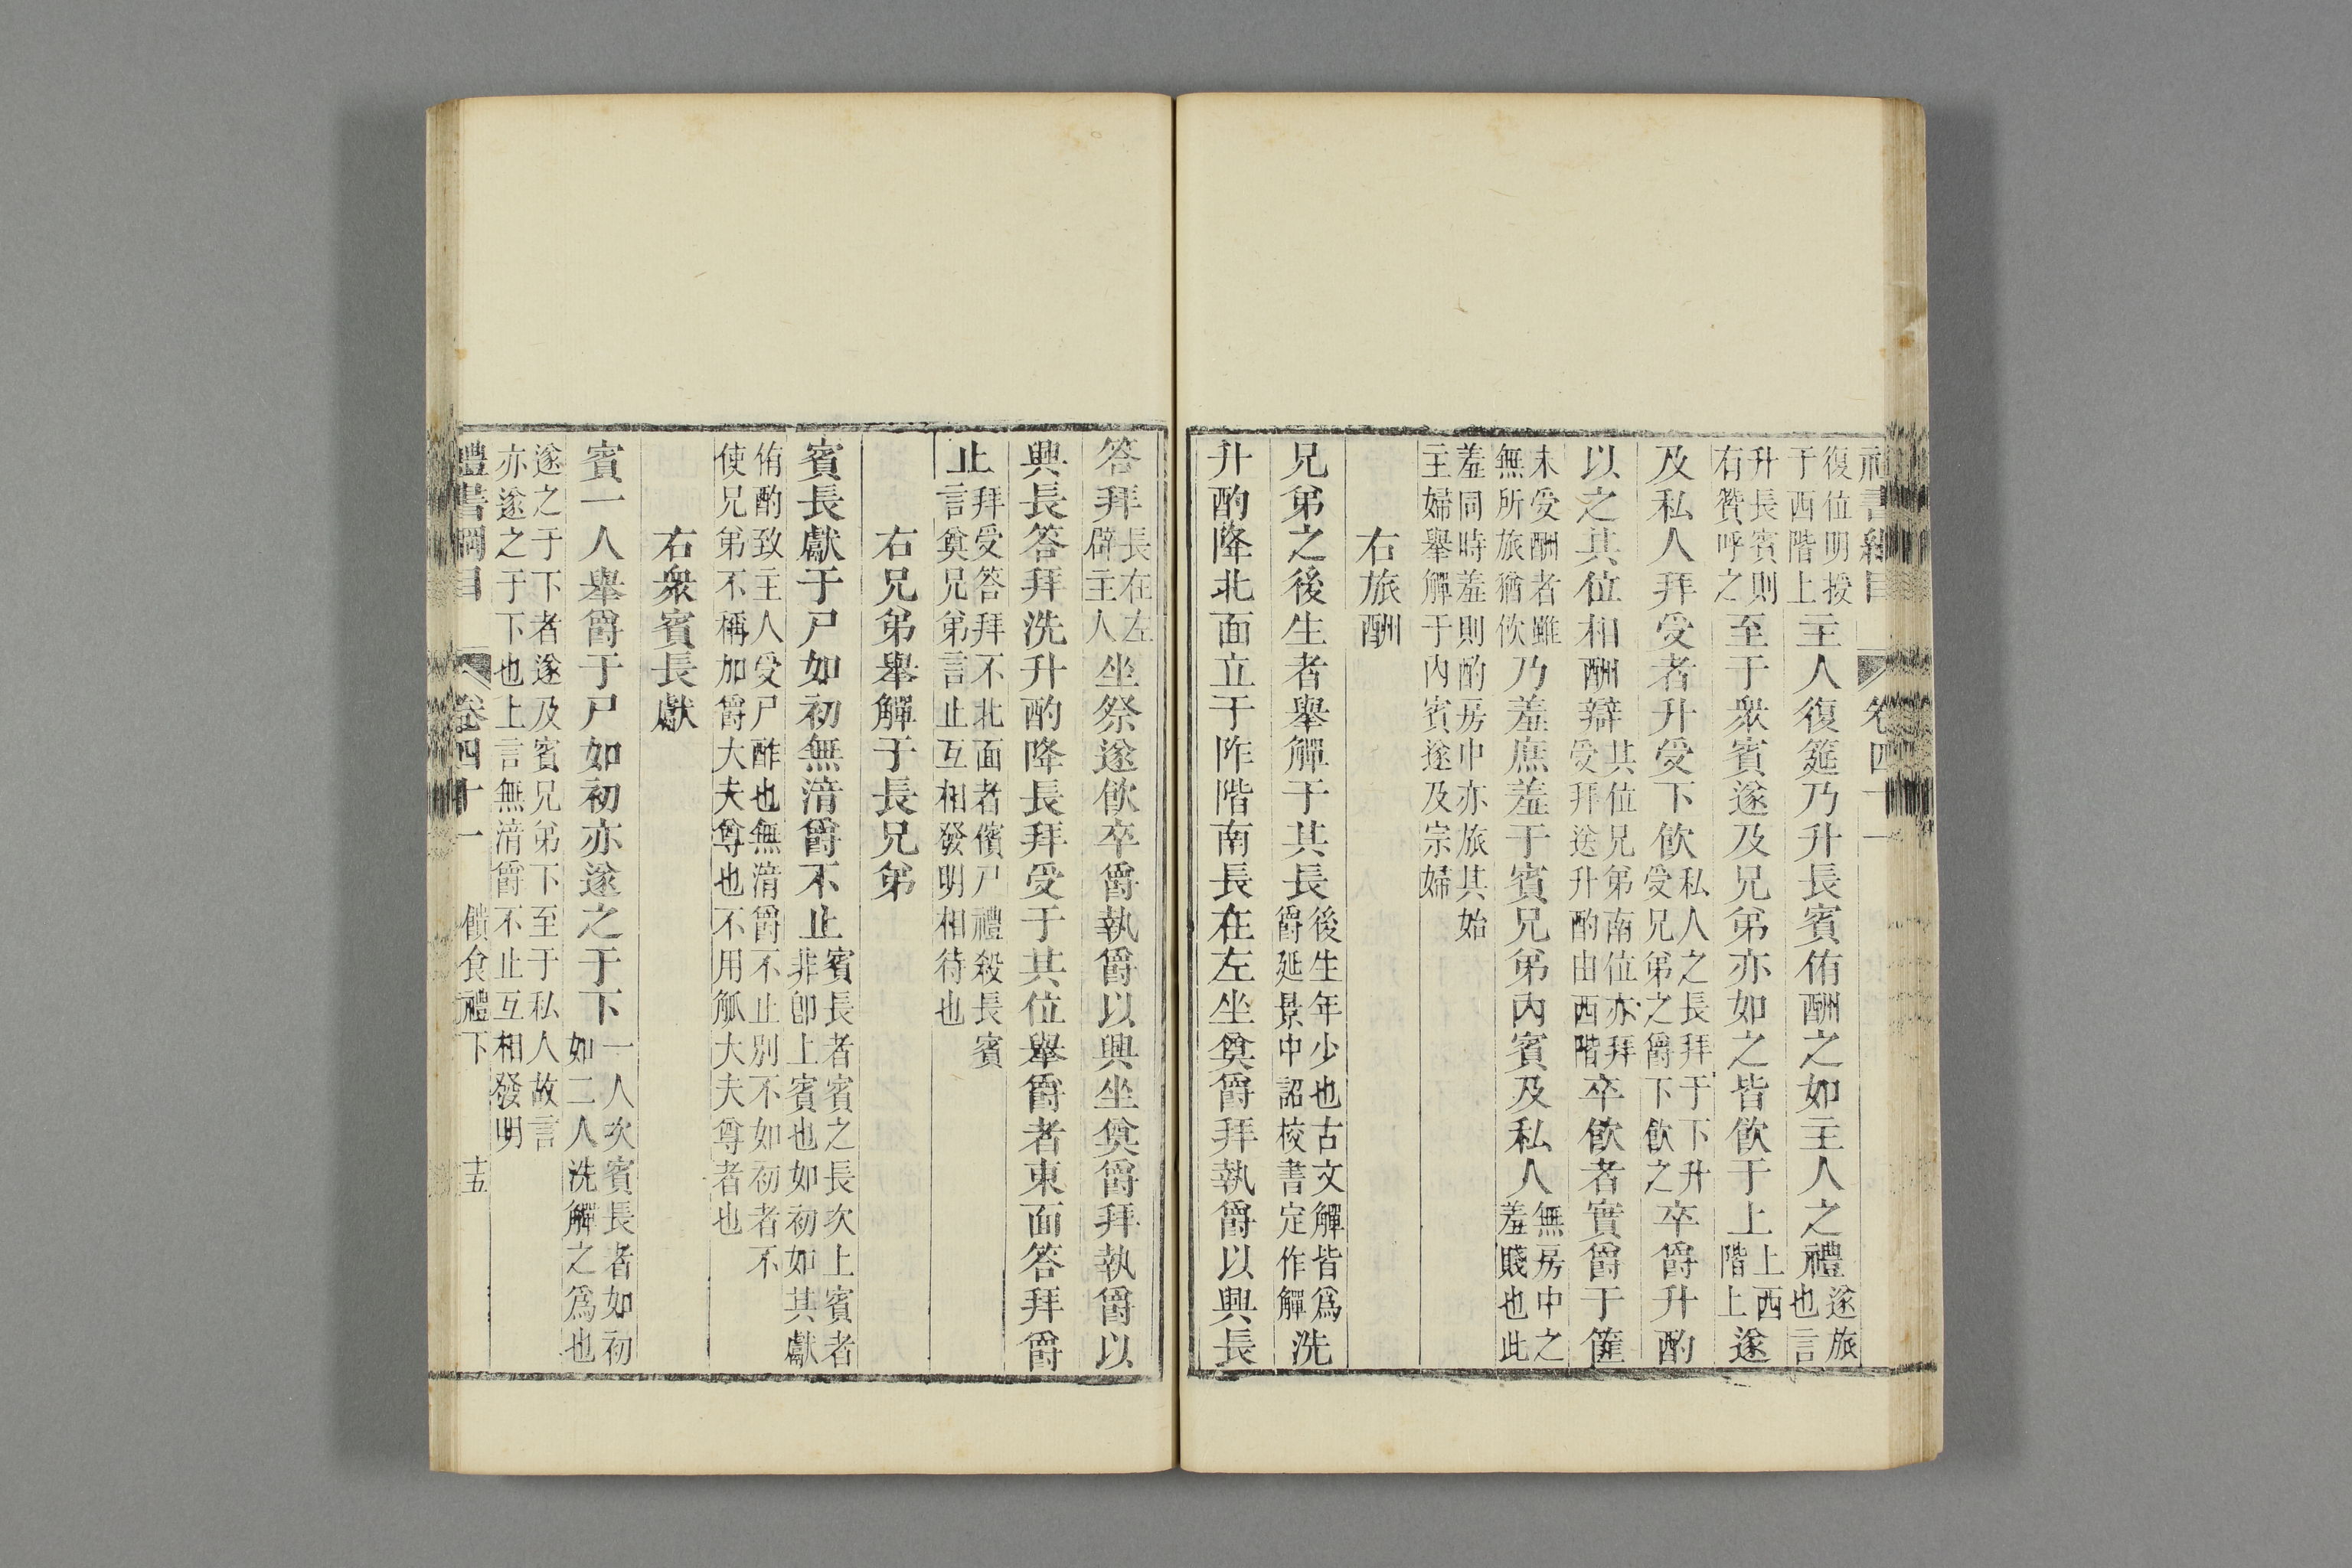 禮書綱目 卷四十一
復位明授于西階上主人復筵乃升長賓侑酬之如主人之禮遂旅也言
升長賓則右贊呼之至于衆賓遂及兄弟亦如之皆飮于上上西階上遂
及私人拜受者升受下飮私人之長拜于下升受兄弟之爵下飮之卒爵升酌
以之其位相酬辯其位兄弟南位亦拜受拜送升酌由西階卒飮者實爵于篚
未受酬者雖無所旅猶飮乃羞庶羞于賓兄弟內賓及私人無房中之羞賤也此
羞同時羞則酌房中亦旅其始主婦舉觶于內賓遂及宗婦
右旅酬
兄弟之後生者舉觶于其長後生年少也古文觶皆爲爵延景中詔校書定作觶洗
升酌降北面立于阼階南長在左坐奠爵拜執爵以興長
答拜長在左辟主人坐祭遂飮卒爵執爵以興坐奠爵拜執爵以
興長答拜洗升酌降長拜受于其位舉爵者東面答拜爵
止拜受答拜不北面者儐尸禮殺長賓言奠兄弟言止互相發明相待也
右兄弟舉觶于長兄弟
賓長獻于尸如初無湆爵不止賓長者賓之長次上賓者非卽上賓也如初如其獻
侑酌致主人受尸酢也無湆爵不止別不如初者不使兄弟不稱加爵大夫尊也不用觚大夫尊者也
右衆賓長獻
賓一人舉爵于尸如初亦遂之于下一人次賓長者如初如二人洗觶之爲也
遂之于下者遂及賓兄弟下至于私人故言亦遂之于下也上言無湆爵不止互相發明
禮書綱目 卷四十一 饋食禮下 十五